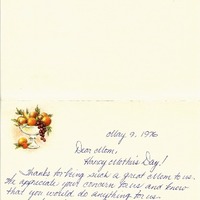 May 9, 1976
Dear Mom,
Happy Mother's Day!
Thanks for being such a great Mom to us.
We appreciate your concern for us and know
that you would do anything for us—